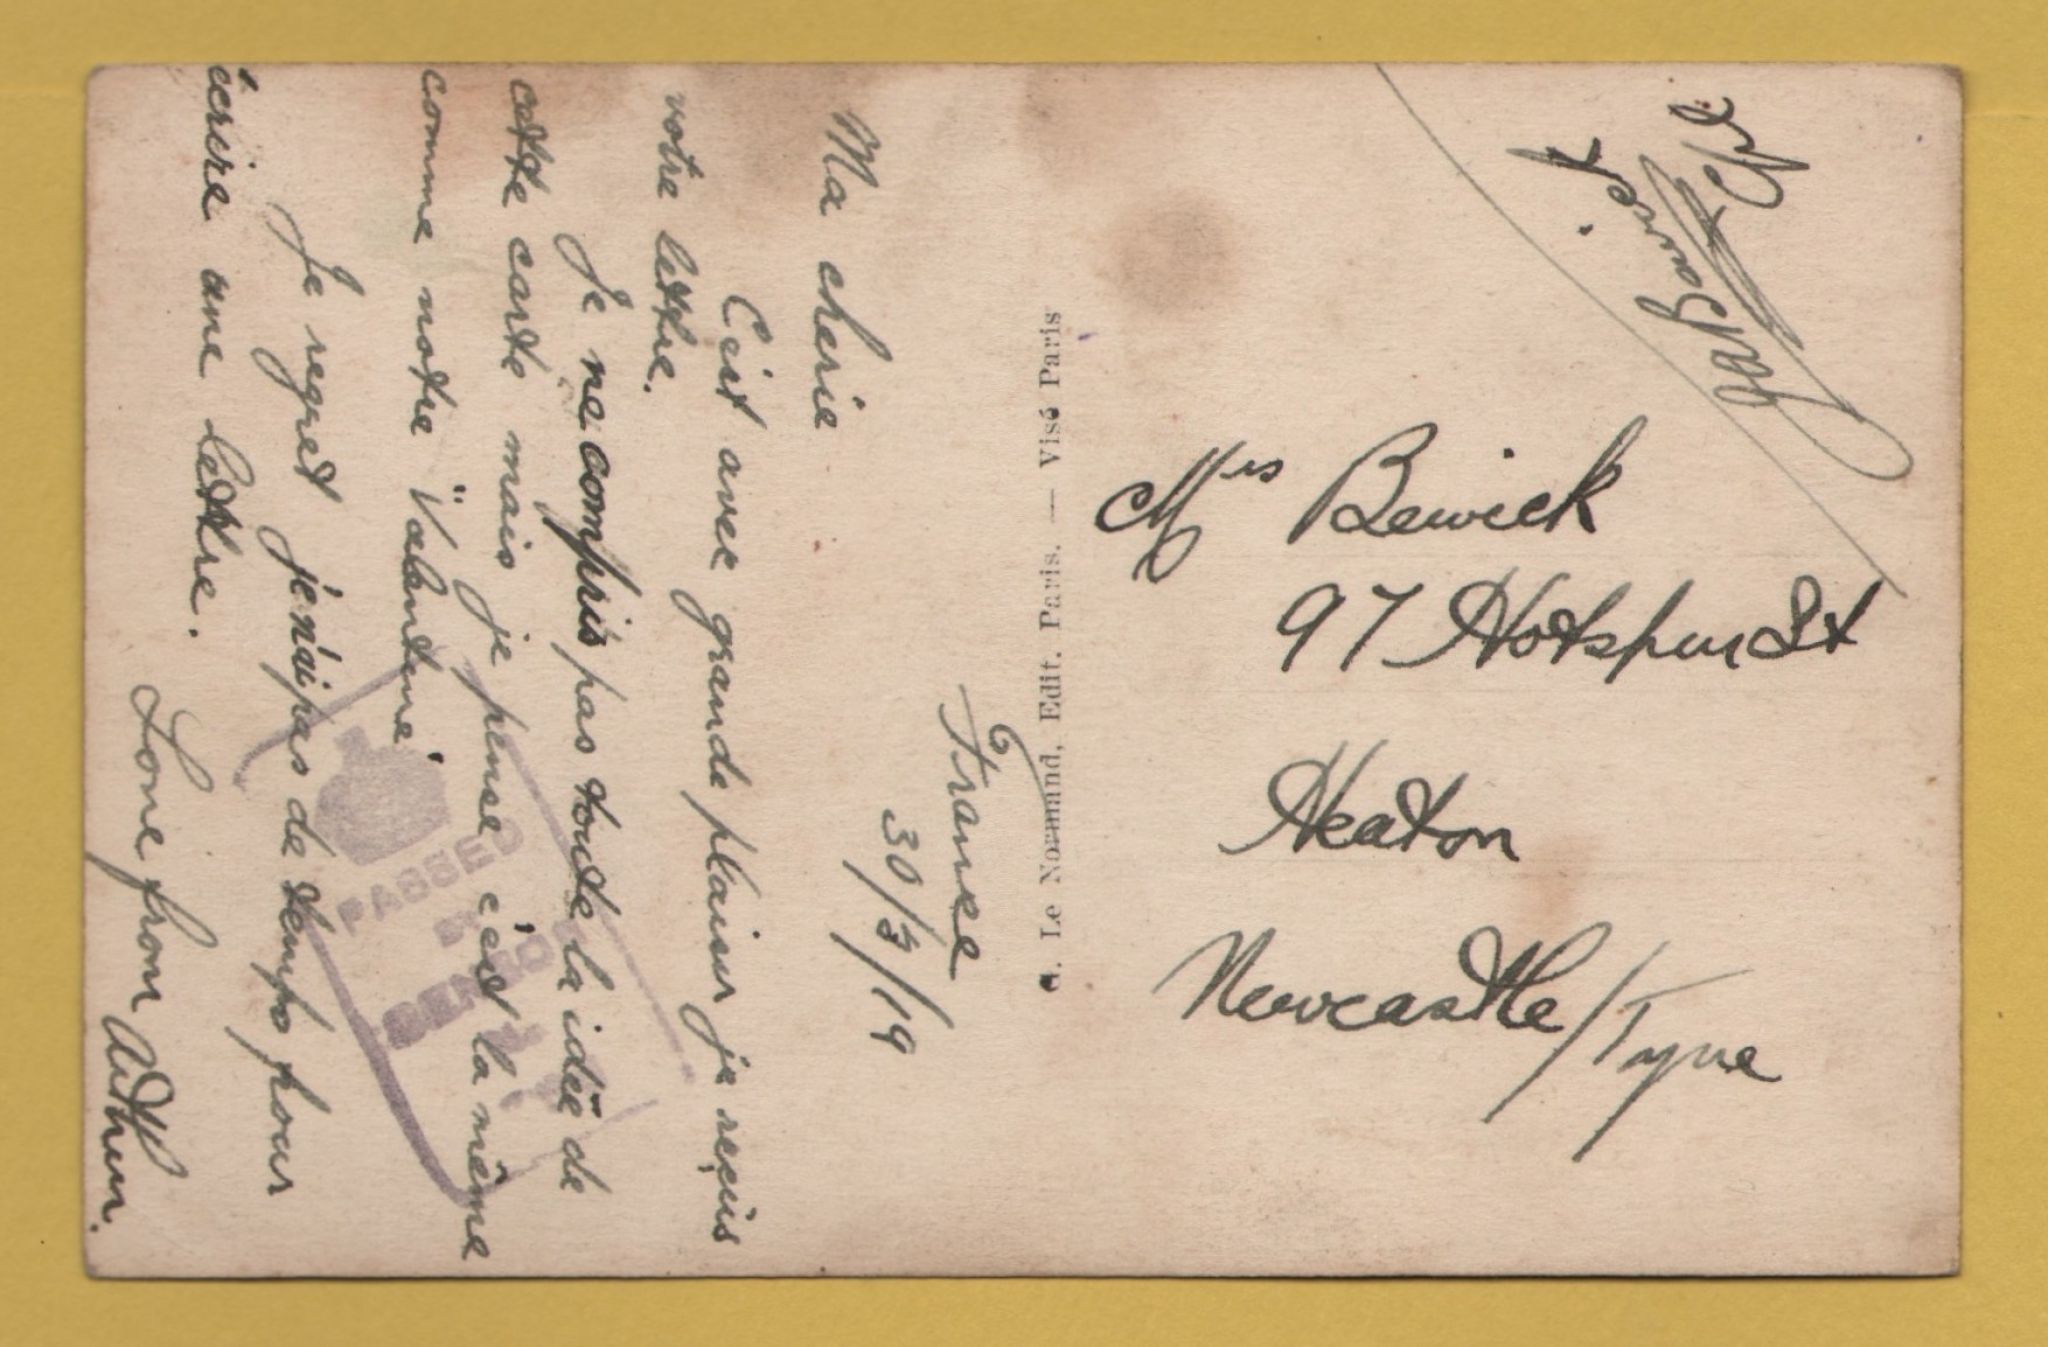 France
30/3/19
Ma cherie
C'est avec grande plaisur je reçuis
votre lettre.
Je ne compris pas toute la idée de
cette carte mais je pense c'est la même
comme notre "Valentine"
Je regret je n'ai pas de temps pour
écrire une lettre.
Love from Arthur.
. Le Normand, Edit. Paris. — Visé Paris
Mrs Bewick
97 Hotspur St
Heaton
Newcastle/Tyne
PASSED
BY
CENSOR